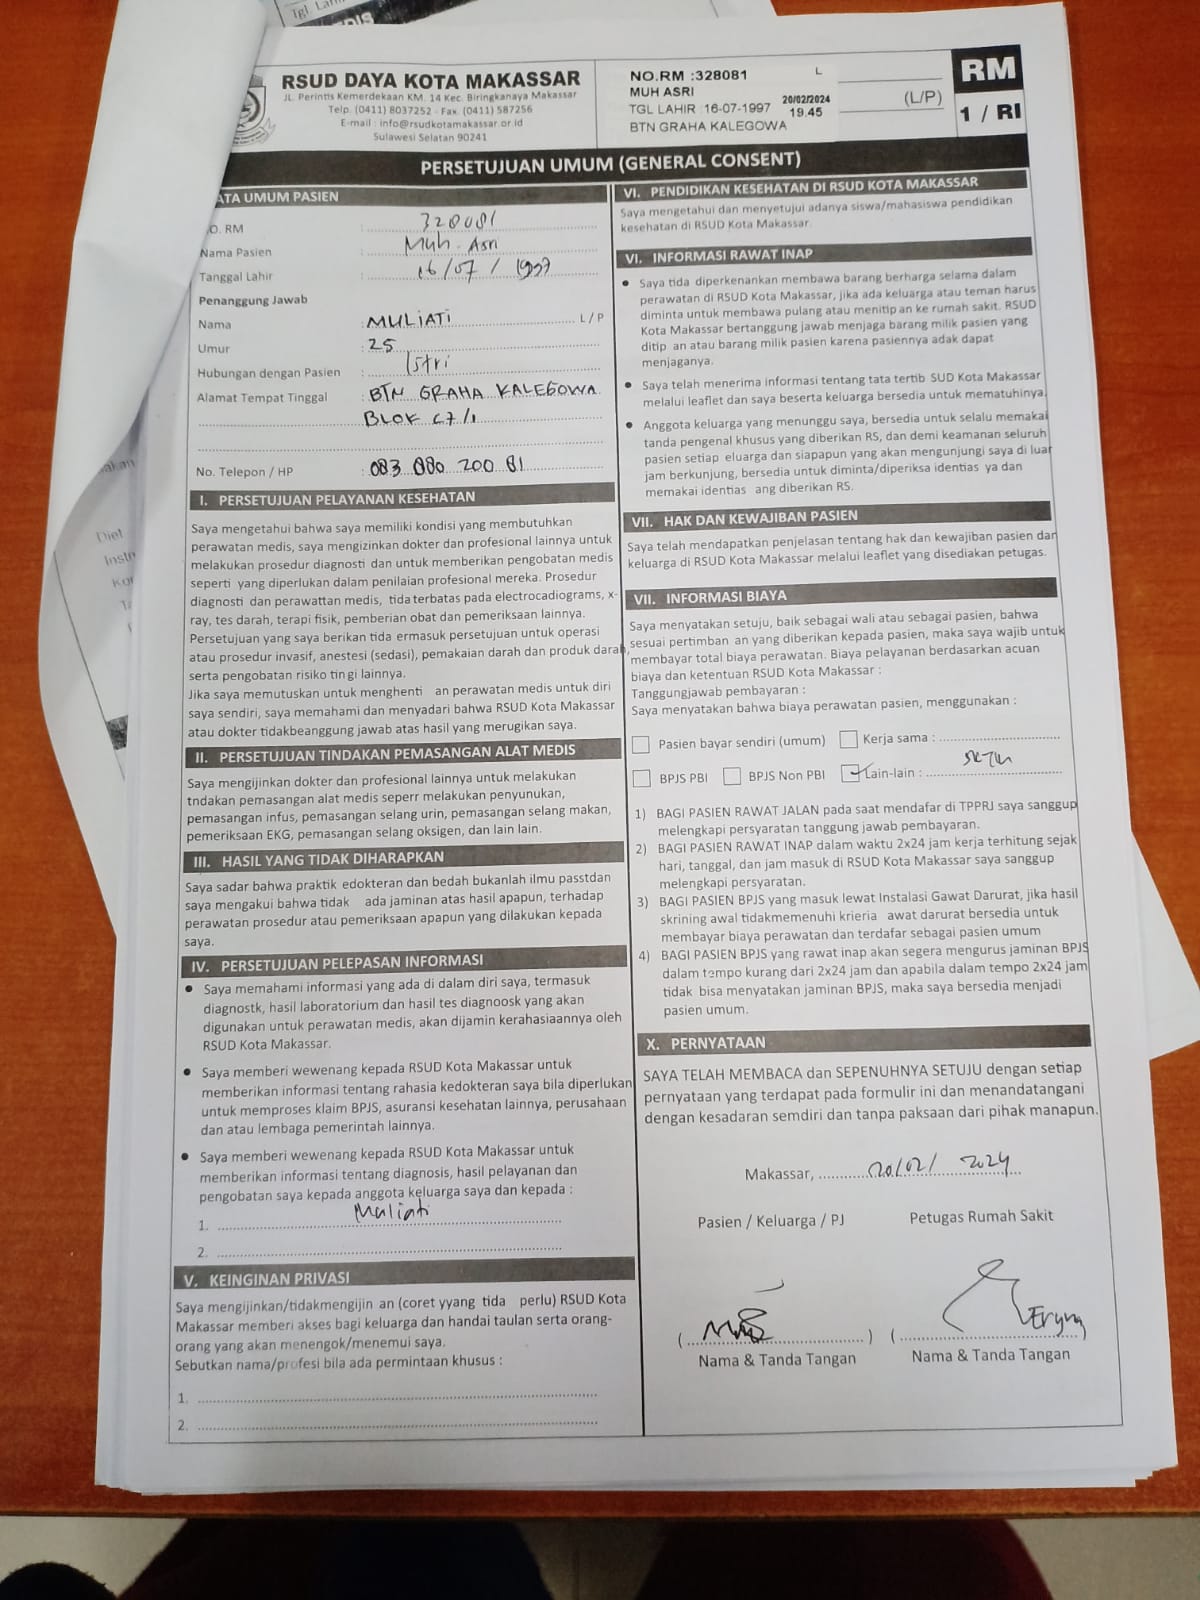 Tgl. Lahir
RSUD DAYA KOTA MAKASSAR
JL. Perintis Kemerdekaan KM. 14 Kec. Biringkanaya Makassar
Telp. (0411) 8037252 - Fax. (0411) 587256
E-mail : info@rsudkotamakassar.or.id
Sulawesi Selatan 90241
NO.RM :328081 L
MUH ASRI
TGL LAHIR :16-07-1997 20/02/2024
19.45
BTN GRAHA KALEGOWA
(L/P)
RM
1 / RI
PERSETUJUAN UMUM (GENERAL CONSENT)
ATA UMUM PASIEN
O. RM : 328081
Nama Pasien : Muh. Asri
Tanggal Lahir : 16/07/1997
Penanggung Jawab
Nama : MULIATI L / P
Umur : 25
Hubungan dengan Pasien : Istri
Alamat Tempat Tinggal : BTN GRAHA KALEGOWA
BLOK C7/1
No. Telepon / HP : 083 880 200 81
I. PERSETUJUAN PELAYANAN KESEHATAN
Saya mengetahui bahwa saya memiliki kondisi yang membutuhkan
perawatan medis, saya mengizinkan dokter dan profesional lainnya untuk
melakukan prosedur diagnosti dan untuk memberikan pengobatan medis
seperti yang diperlukan dalam penilaian profesional mereka. Prosedur
diagnosti dan perawattan medis, tida terbatas pada electrocadiograms, x-
ray, tes darah, terapi fisik, pemberian obat dan pemeriksaan lainnya.
Persetujuan yang saya berikan tida ermasuk persetujuan untuk operasi
atau prosedur invasif, anestesi (sedasi), pemakaian darah dan produk darah,
serta pengobatan risiko tin gi lainnya.
Jika saya memutuskan untuk menghenti an perawatan medis untuk diri
saya sendiri, saya memahami dan menyadari bahwa RSUD Kota Makassar
atau dokter tidakbeanggung jawab atas hasil yang merugikan saya.
II. PERSETUJUAN TINDAKAN PEMASANGAN ALAT MEDIS
Saya mengijinkan dokter dan profesional lainnya untuk melakukan
tndakan pemasangan alat medis seperr melakukan penyunukan,
pemasangan infus, pemasangan selang urin, pemasangan selang makan,
pemeriksaan EKG, pemasangan selang oksigen, dan lain lain.
III. HASIL YANG TIDAK DIHARAPKAN
Saya sadar bahwa praktik edokteran dan bedah bukanlah ilmu passtdan
saya mengakui bahwa tidak ada jaminan atas hasil apapun, terhadap
perawatan prosedur atau pemeriksaan apapun yang dilakukan kepada
saya.
IV. PERSETUJUAN PELEPASAN INFORMASI
• Saya memahami informasi yang ada di dalam diri saya, termasuk
diagnostk, hasil laboratorium dan hasil tes diagnoosk yang akan
digunakan untuk perawatan medis, akan dijamin kerahasiaannya oleh
RSUD Kota Makassar.
• Saya memberi wewenang kepada RSUD Kota Makassar untuk
memberikan informasi tentang rahasia kedokteran saya bila diperlukan
untuk memproses klaim BPJS, asuransi kesehatan lainnya, perusahaan
dan atau lembaga pemerintah lainnya.
• Saya memberi wewenang kepada RSUD Kota Makassar untuk
memberikan informasi tentang diagnosis, hasil pelayanan dan
pengobatan saya kepada anggota keluarga saya dan kepada :
1. Muliati
2.
V. KEINGINAN PRIVASI
Saya mengijinkan/tidakmengijin an (coret yyang tida perlu) RSUD Kota
Makassar memberi akses bagi keluarga dan handai taulan serta orang-
orang yang akan menengok/menemui saya.
Sebutkan nama/profesi bila ada permintaan khusus :
1.
2.
VI. PENDIDIKAN KESEHATAN DI RSUD KOTA MAKASSAR
Saya mengetahui dan menyetujui adanya siswa/mahasiswa pendidikan
kesehatan di RSUD Kota Makassar.
VI. INFORMASI RAWAT INAP
• Saya tida diperkenankan membawa barang berharga selama dalam
perawatan di RSUD Kota Makassar, jika ada keluarga atau teman harus
diminta untuk membawa pulang atau menitip an ke rumah sakit. RSUD
Kota Makassar bertanggung jawab menjaga barang milik pasien yang
ditip an atau barang milik pasien karena pasiennya adak dapat
menjaganya.
• Saya telah menerima informasi tentang tata tertib SUD Kota Makassar
melalui leaflet dan saya beserta keluarga bersedia untuk mematuhinya.
• Anggota keluarga yang menunggu saya, bersedia untuk selalu memakai
tanda pengenal khusus yang diberikan RS, dan demi keamanan seluruh
pasien setiap eluarga dan siapapun yang akan mengunjungi saya di luar
jam berkunjung, bersedia untuk diminta/diperiksa identias ya dan
memakai identias ang diberikan RS.
VII. HAK DAN KEWAJIBAN PASIEN
Saya telah mendapatkan penjelasan tentang hak dan kewajiban pasien dan
keluarga di RSUD Kota Makassar melalui leaflet yang disediakan petugas.
VII. INFORMASI BIAYA
Saya menyatakan setuju, baik sebagai wali atau sebagai pasien, bahwa
sesuai pertimban an yang diberikan kepada pasien, maka saya wajib untuk
membayar total biaya perawatan. Biaya pelayanan berdasarkan acuan
biaya dan ketentuan RSUD Kota Makassar :
Tanggungjawab pembayaran :
Saya menyatakan bahwa biaya perawatan pasien, menggunakan :
Pasien bayar sendiri (umum) Kerja sama :
BPJS PBI BPJS Non PBI Lain-lain : SKTM
1) BAGI PASIEN RAWAT JALAN pada saat mendafar di TPPRJ saya sanggup
melengkapi persyaratan tanggung jawab pembayaran.
2) BAGI PASIEN RAWAT INAP dalam waktu 2x24 jam kerja terhitung sejak
hari, tanggal, dan jam masuk di RSUD Kota Makassar saya sanggup
melengkapi persyaratan.
3) BAGI PASIEN BPJS yang masuk lewat Instalasi Gawat Darurat, jika hasil
skrining awal tidakmemenuhi krieria awat darurat bersedia untuk
membayar biaya perawatan dan terdafar sebagai pasien umum
4) BAGI PASIEN BPJS yang rawat inap akan segera mengurus jaminan BPJS
dalam tempo kurang dari 2x24 jam dan apabila dalam tempo 2x24 jam
tidak bisa menyatakan jaminan BPJS, maka saya bersedia menjadi
pasien umum.
X. PERNYATAAN
SAYA TELAH MEMBACA dan SEPENUHNYA SETUJU dengan setiap
pernyataan yang terdapat pada formulir ini dan menandatangani
dengan kesadaran semdiri dan tanpa paksaan dari pihak manapun.
Makassar, 20/02/2024
Pasien / Keluarga / PJ Petugas Rumah Sakit
Nama & Tanda Tangan Nama & Tanda Tangan
Diet